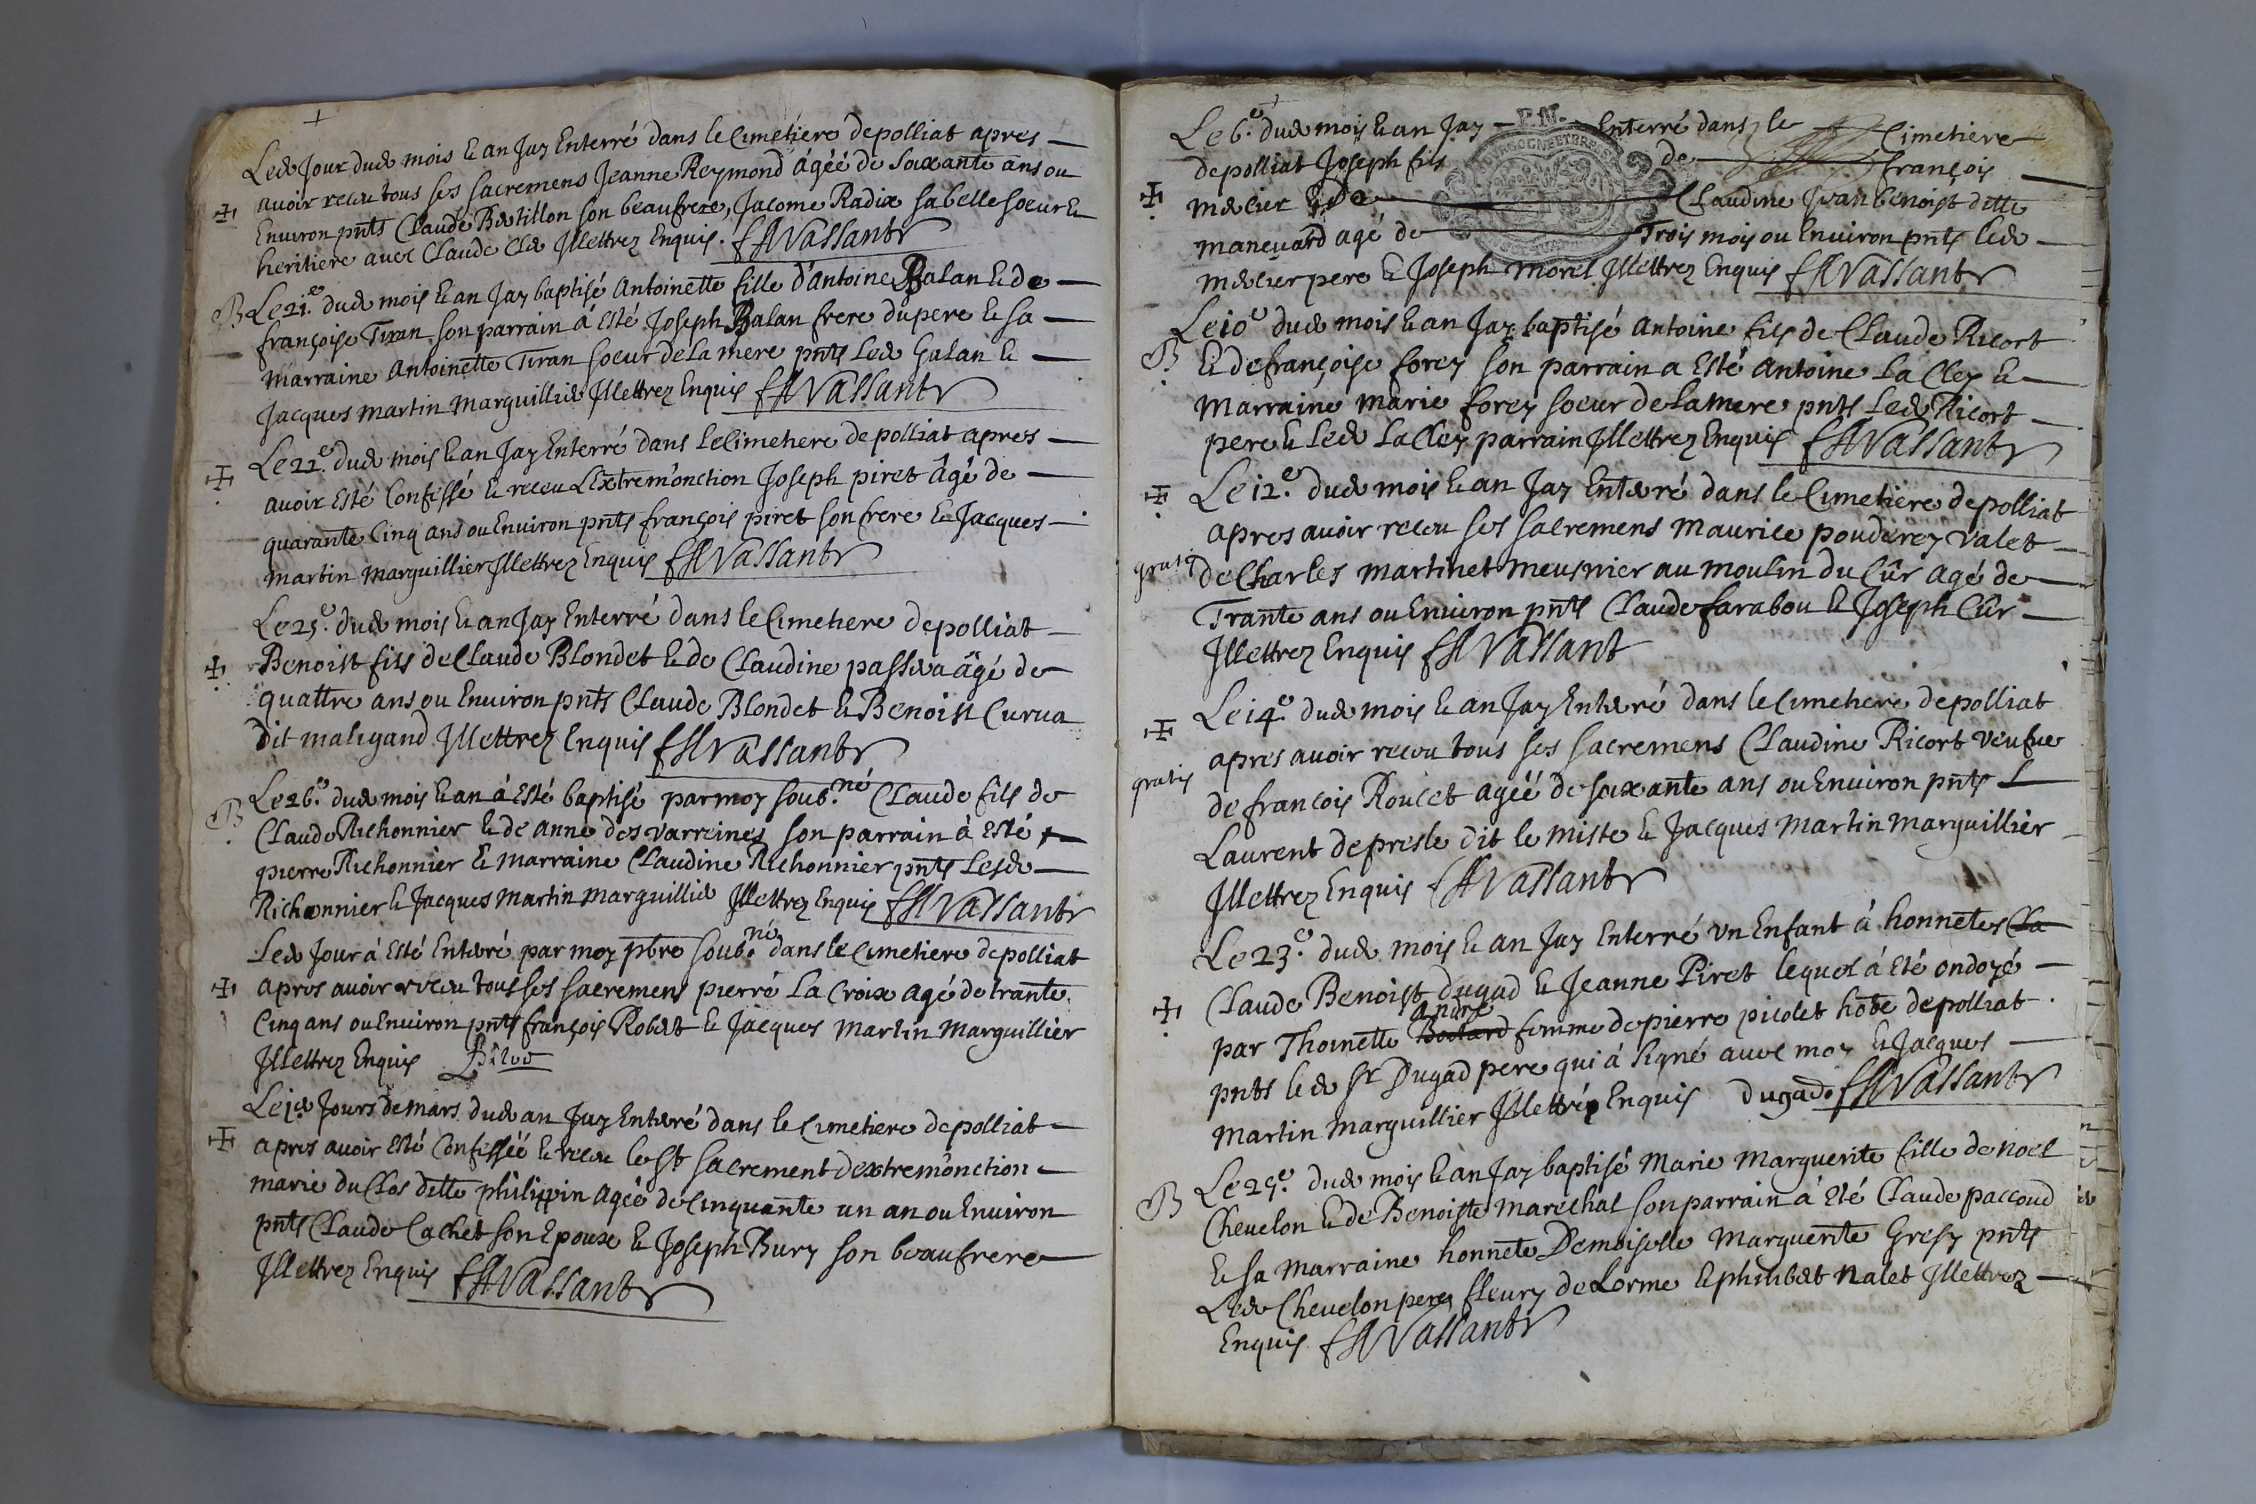 +
Led Jour dud mois & an Jay Enterré dans le Cimetiere depolliat apres —
avoir receu tous ses sacremens Jeanne Reymond ágéé de soixante ans ou
Environ pnts Claude son beaufrere, Jacome Radix sa belle soeur &
heritiere avec Claude Illettrez Enquis. Vassant
B Le 21.e dud mois & an Jay baptisé Antoinette fille d'Antoine Balan & de —
françoise Tiran son parrain à Esté Joseph Balan frere du pere & sa —
Marraine Antoinette Tiran soeur de La mere pnts Led Galan & —
Jacques Martin Marguillier Illettrez Enquis Vassant
Le 22.e dud mois & an Jay Enterré dans le Cimetiere de polliat apres —
avoir Esté Confessé & receu L'Extremonction Joseph piret âgé de —
quarante Cinq ans ou Environ pnts françois piret son frere & Jacques —
Martin Marguillier Illettrez Enquis Vassant
Le 25.e dud mois & an Jay Enterré dans le Cimetiere depolliat —
Benoist fils de Claude Blondet & de Claudine âgé de
quattre ans ou Environ pnts Claude Blondet & Benoist Curva
dit maligand Illettrez Enquis Vassant
B Le 26.e dud mois & an à Esté baptisé par moy soub.né Claude fils de
Claude Richonnier & de anne des varreines son parrain à Esté
pierre Richonnier & marraine Claudine Richonnier pnts Lesd —
Richonnier & Jacques Martin Marguillier Illettrez Enquis Vassant
Led Jour à Esté Enterré par moy pbre soub.né dans le Cimetiere depolliat
apres avoir receu tous ses sacremens pierre La Croix agé de trante
Cinq ans ou Environ pnts françois Robert & Jacques Martin Marguillier
Illettrez Enquis
Le 1er Jours de mars dud an Jay Enterré dans le Cimetiere depolliat —
apres avoir Esté Confesséé & receu le St sacrement dextremonction —
marie du Clos ditte philippin agéé de Cinquante un an ou Environ
pnts Claude Cachet son Epoux & Joseph Bury son beaufrere —
Illettrez Enquis Vassant
Le 6.e dud mois & an Jay — Enterré dans le Cimetiere
depolliat Joseph fils de — françois —
mercier & De — Claudine Jvan benoist ditte
manevard agé de — Trois mois ou Environ pnts led —
mercier pere & Joseph morel Illettrez Enquis Vassant
B Le 10.e dud mois & an Jay baptisé Antoine fils de Claude Ricort
& de françoise forey son parrain a Esté Antoine La Cley & —
Marraine marie forey soeur de La mere pnts Led Ricort —
pere & Led La Cley parrain Illettrez Enquis Vassant
Le 12.e dud mois & an Jay Enterré dans le Cimetiere depolliat
apres avoir receu ses sacremens Maurice pouderey valet —
gratis de Charles martinet meusnier au moulin du Cûr agé de —
Trante ans ou Environ pnts Claude farabou & Joseph Cûr —
Illettrez Enquis Vassant
Le 14.e dud mois & an Jay Enterré dans le Cimetiere depolliat
apres avoir receu tous ses sacremens Claudine Ricort veufve
gratis de francois Roulet agéé de soixante ans ou Environ pnts
Laurent depresle dit le miste & Jacques Martin Marguillier
Illettrez Enquis Vassant
Le 23.e dud mois & an Jay Enterré un Enfant à honnetes Cla
Claude Benoist dugad & Jeanne Piret lequel á Eté ondoyé —
par Thoinette andre femme de pierre picolet hôte depolliat
pnts led Sr Dugad pere qui à signé avec moy & Jacques —
Martin Marguillier Illettré Enquis dugad Vassant
B Le 25.e dud mois & an Jay baptisé Marie Marguerite fille de noel
Chevelon & de Benoiste Marechal son parrain à Eté Claude paccoud
& sa Marraine honnete Demoiselle Marguerite Gresy pnts
Led Chevelon pere, fleury de Lorme & philibert nalet Illettrez —
Enquis Vassant